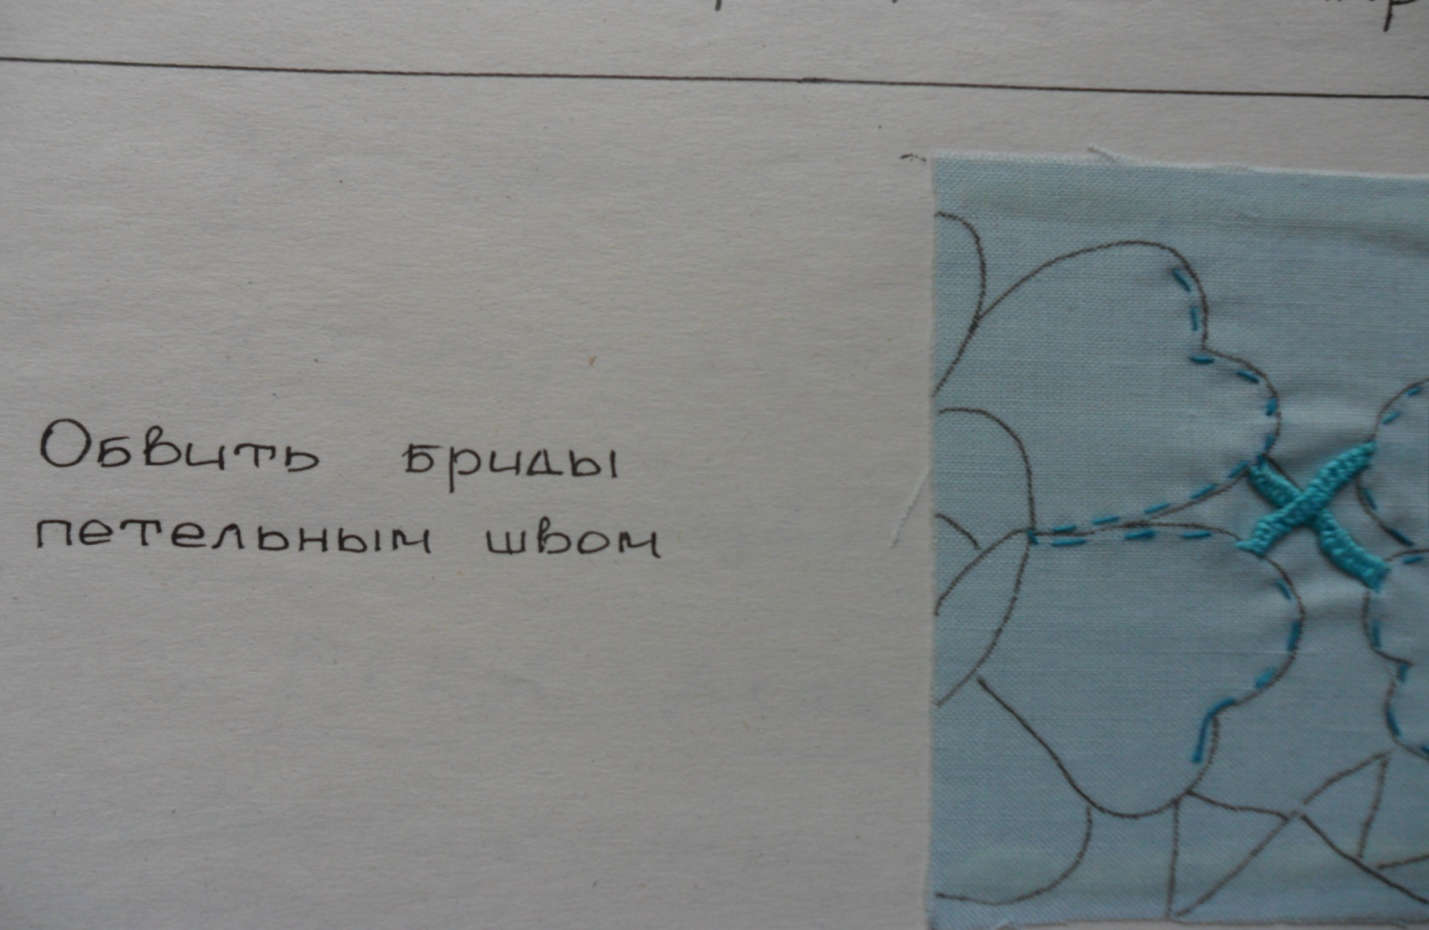 Обвить бриды
петельным швом